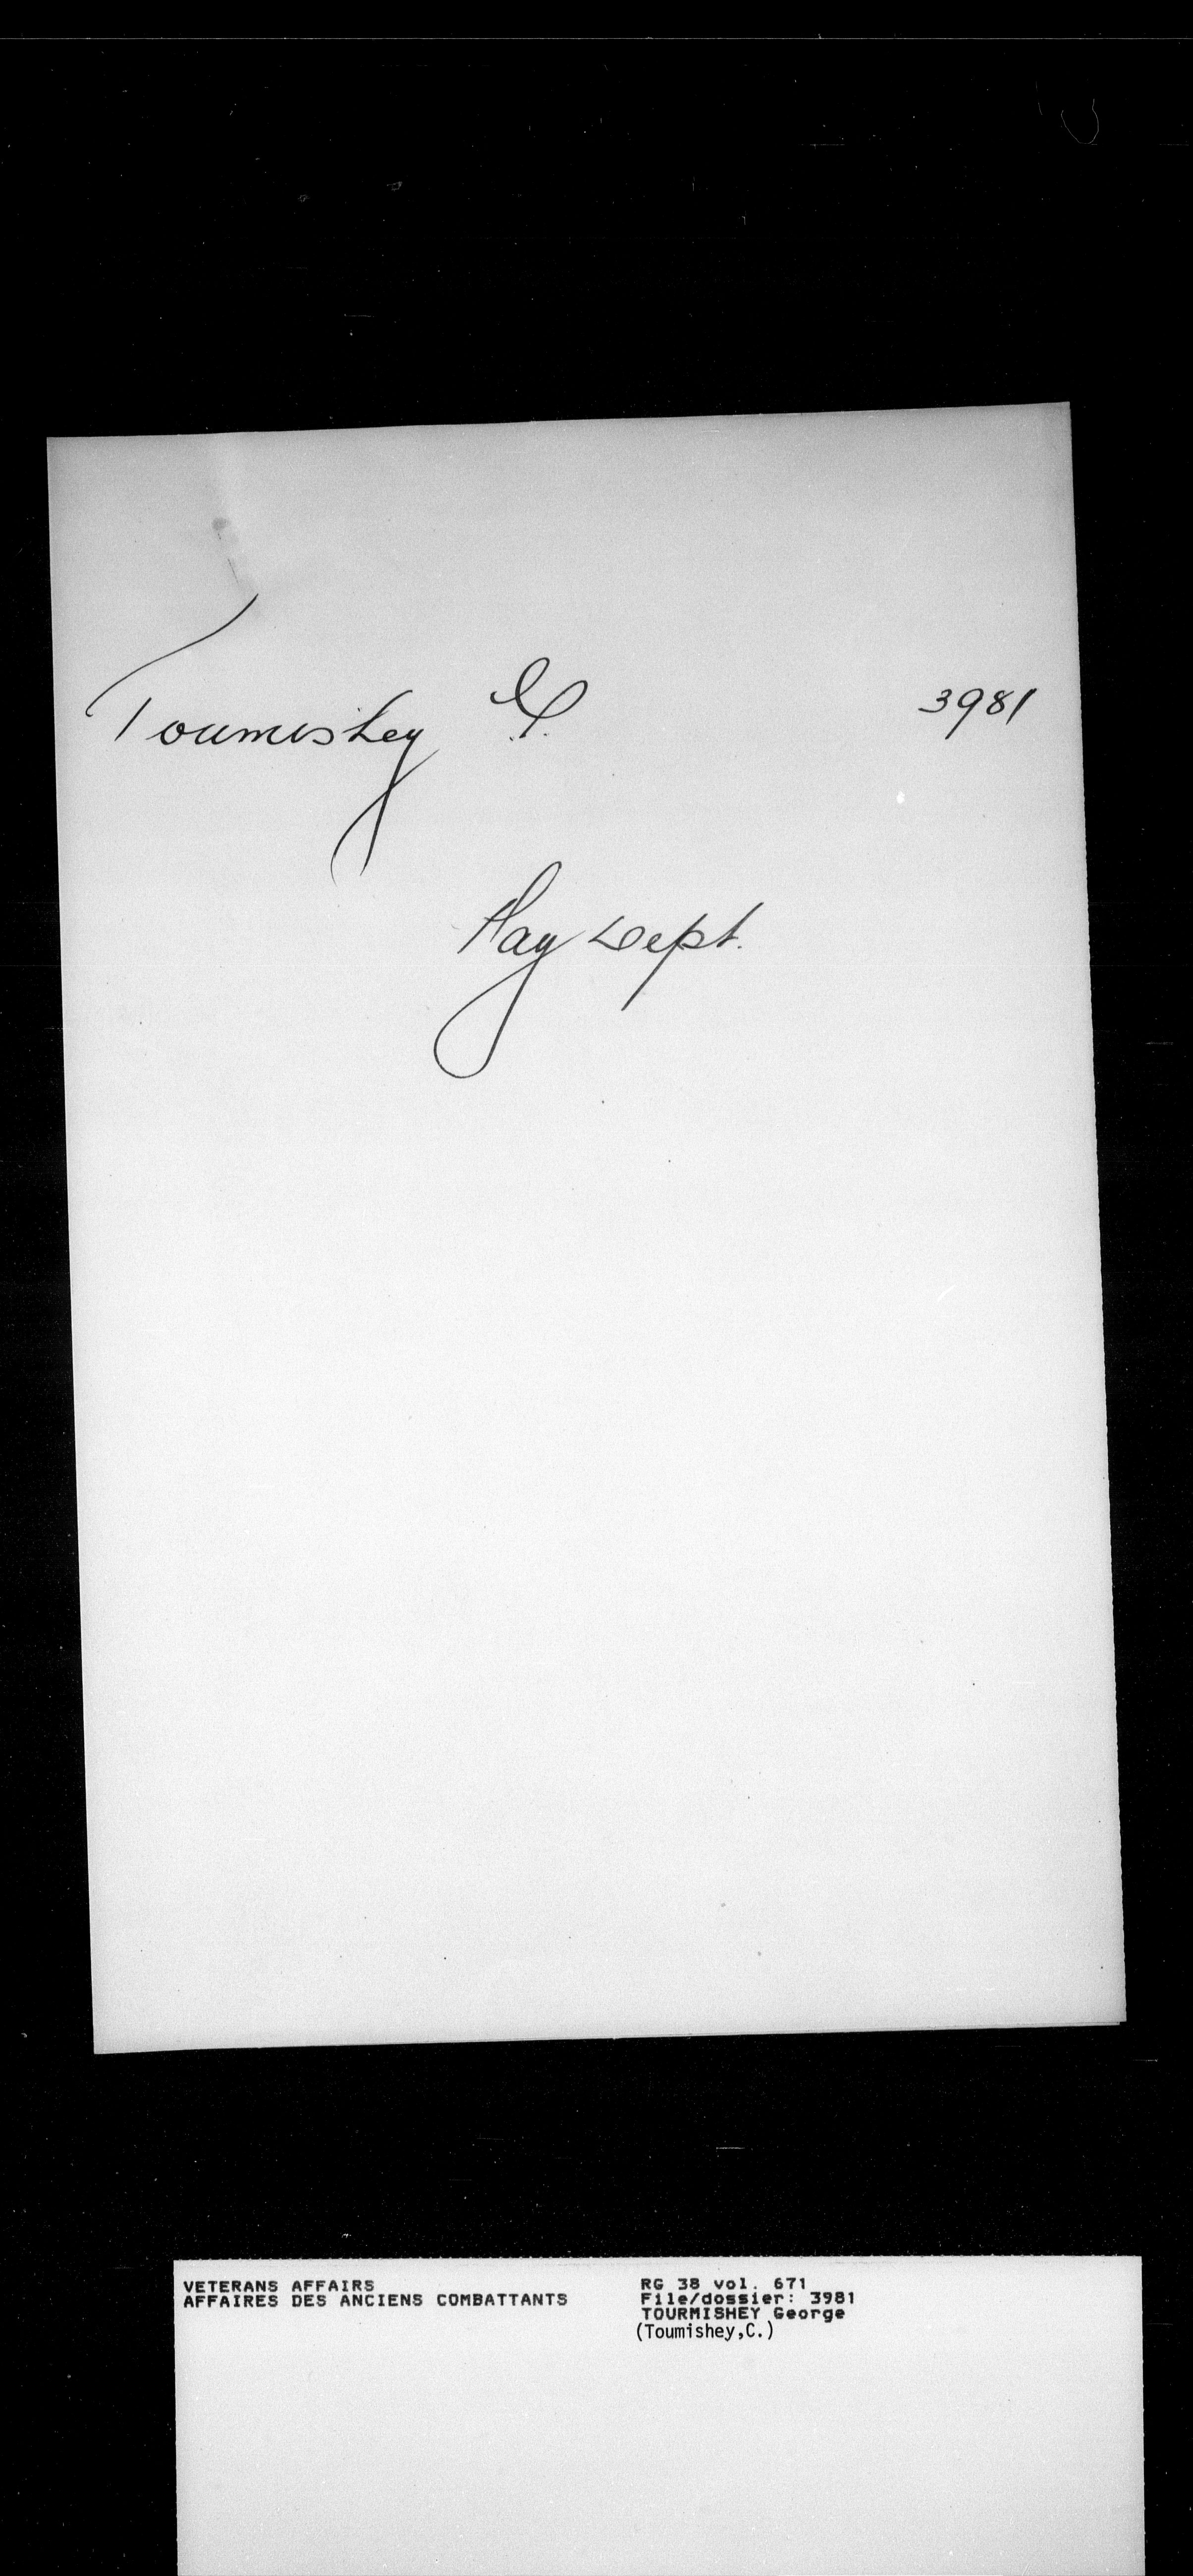 Toumishey G. 3981
Pay Dept.
VETERANS AFFAIRS
AFFAIRES DES ANCIENS COMBATTANTS
RG 38 vol. 671
File/dossier: 3981
TOURMISHEY George
(Toumishey,C.)